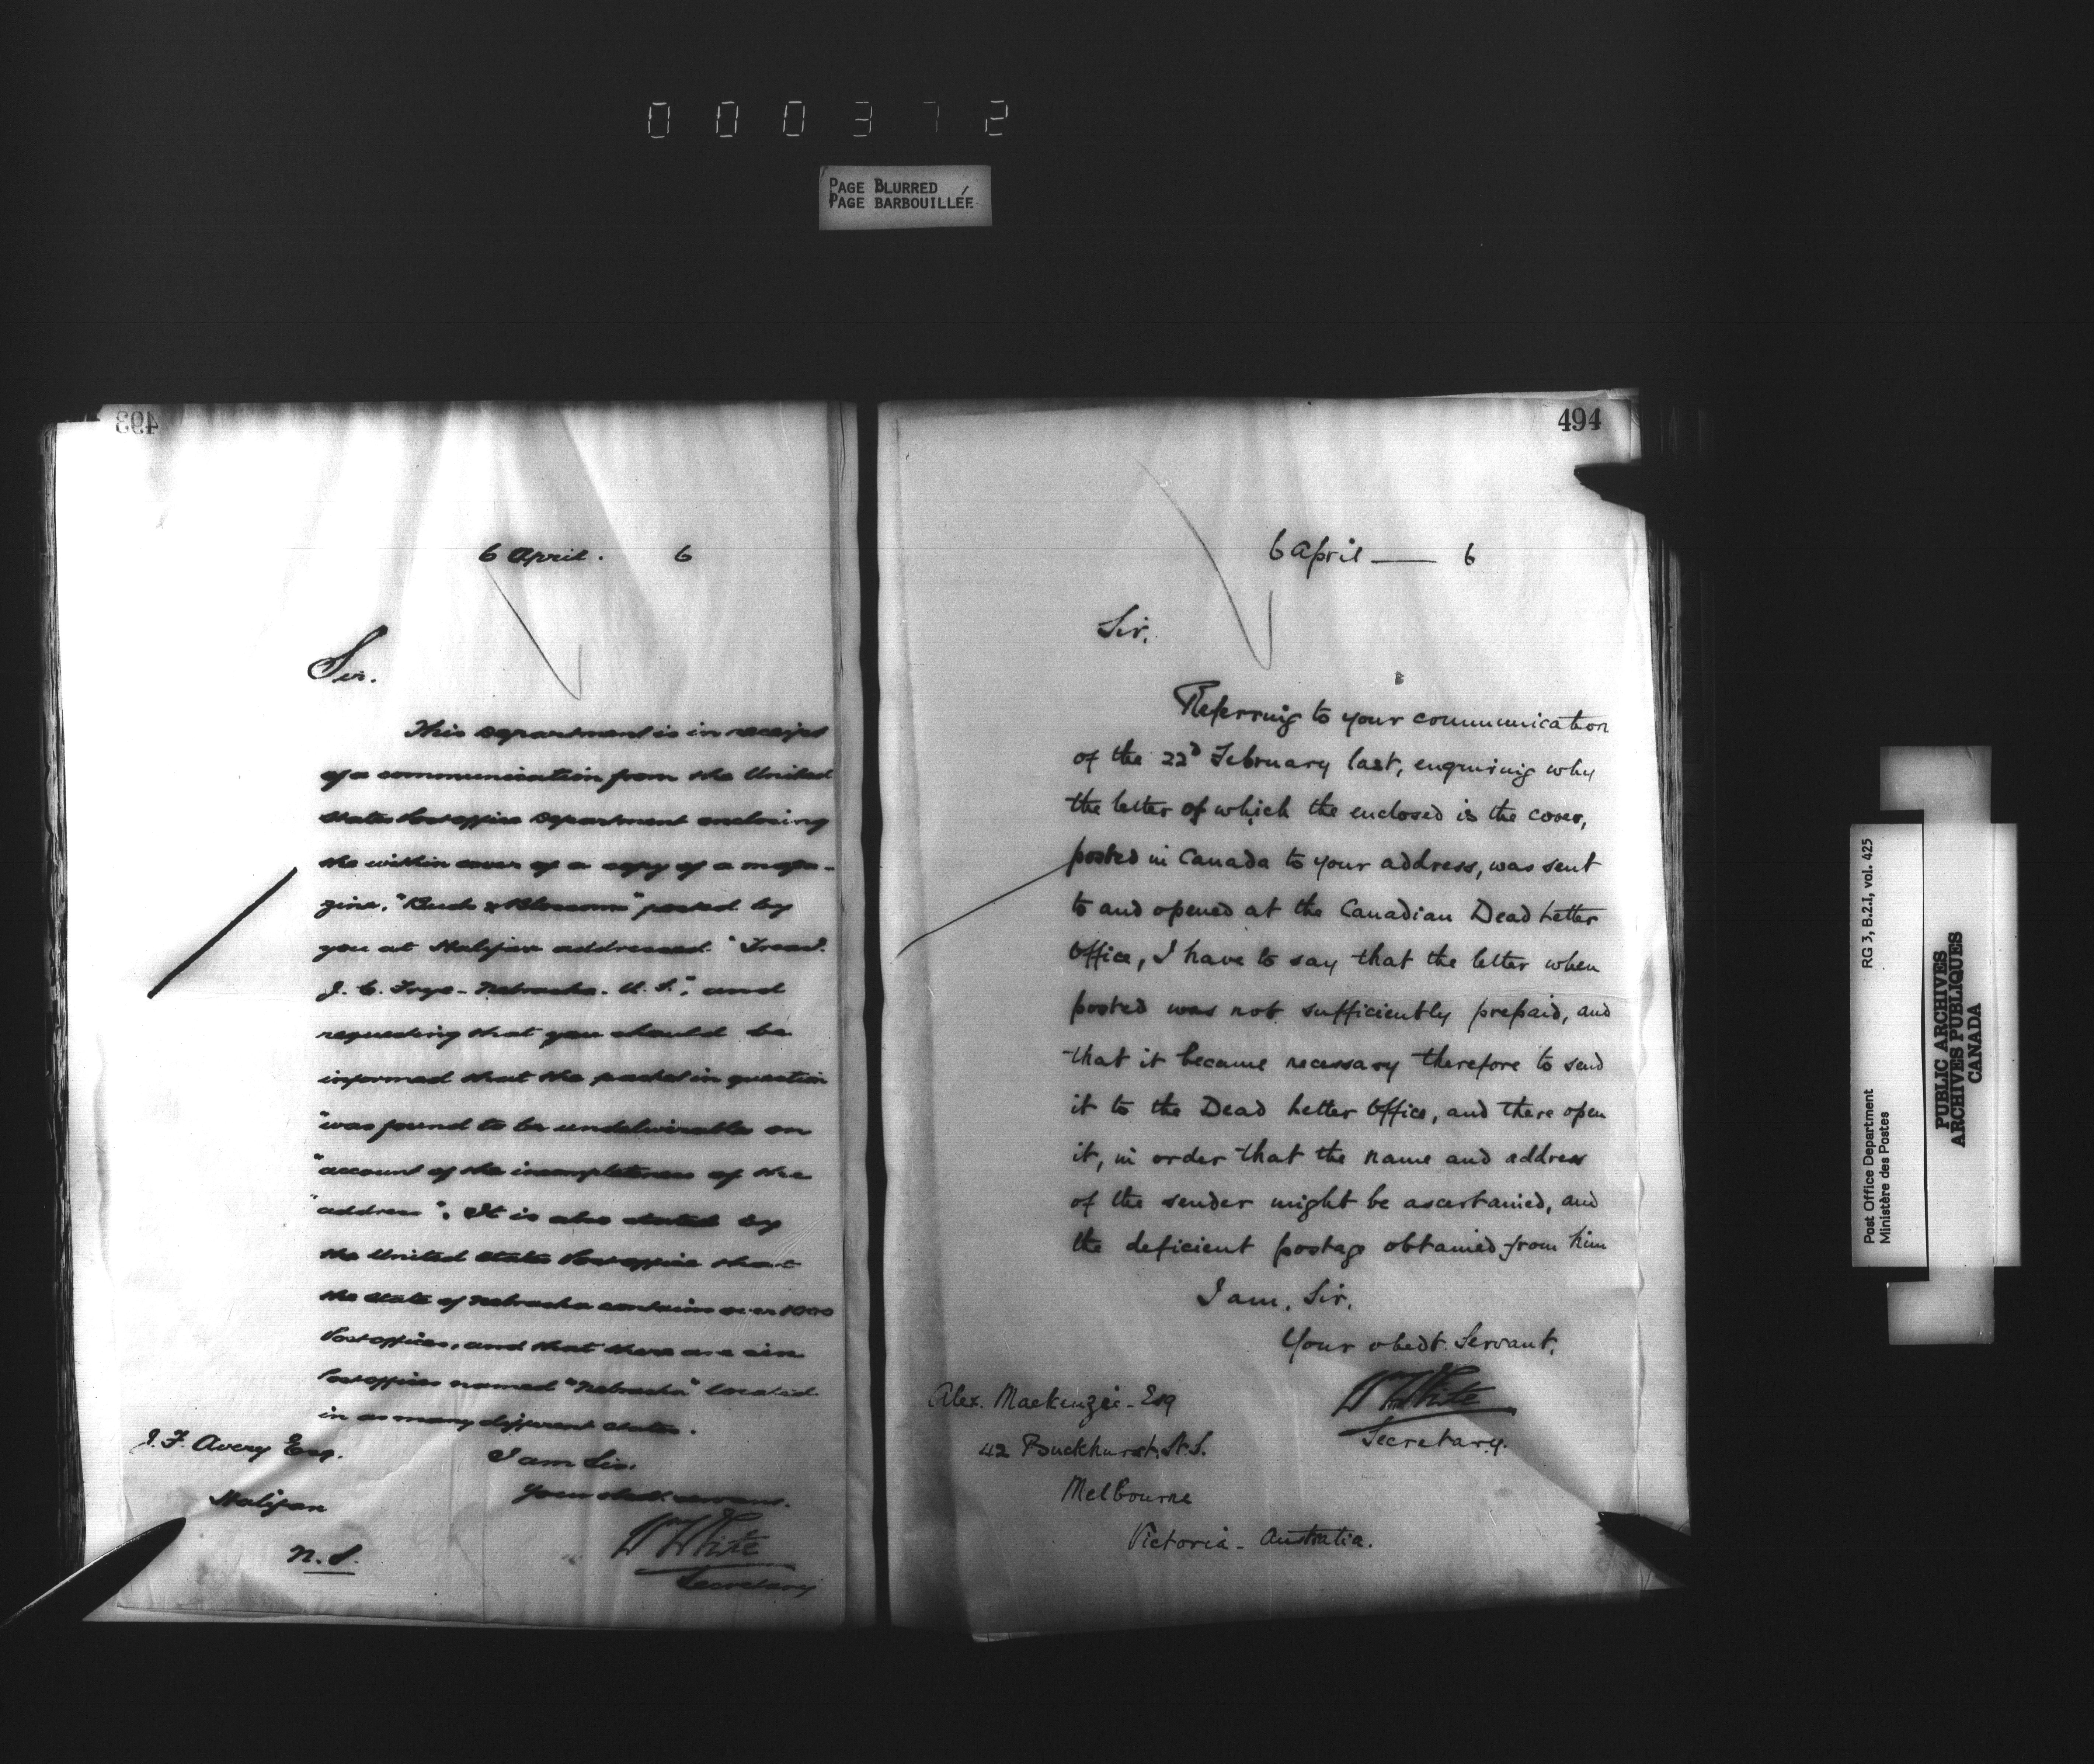 000372
PAGE BLURRED
PAGE BARBOUILLÉE
493
6 April. 6
Sir.
This Department is in receipt
of a communication from the United
States Post office Department enclosing
the within cover of a copy of a maga-
zine, "Buds & Blossoms" posted by
you at Halifax addressed "
J. C. Frye - Nebraska. U. S.", and
requesting that you should be
informed that the packet in question
"was found to be undeliverable on
"account of the incompleteness of the
"address". It is also stated by
the United States Post office that
the State of Nebraska contains over 1000
Post offices, and that there are six
Post offices named "Nebraska" located
in as many different States.
I am Sir.
Your obedt. servant.
Wm White
Secretary
J. F. Avery Esq.
Halifax
N. S.
494
6 April — 6
Sir,
Referring to your communication
of the 22d February last, enquiring why
the letter of which the enclosed is the cover,
posted in Canada to your address, was sent
to and opened at the Canadian Dead Letter
Office, I have to say that the letter when
posted was not sufficiently prepaid, and
that it became necessary therefore to send
it to the Dead Letter Office, and there open
it, in order that the name and address
of the sender might be ascertained, and
the deficient postage obtained from him
I am, Sir,
Your obedt. Servant,
Wm White
Secretary.
Alex. Mackenzie - Esq
42 Buckhurst St. S.
Melbourne
Victoria - Australia.
Post Office Department RG 3, B.2.I, vol. 425
Ministère des Postes
PUBLIC ARCHIVES
ARCHIVES PUBLIQUES
CANADA